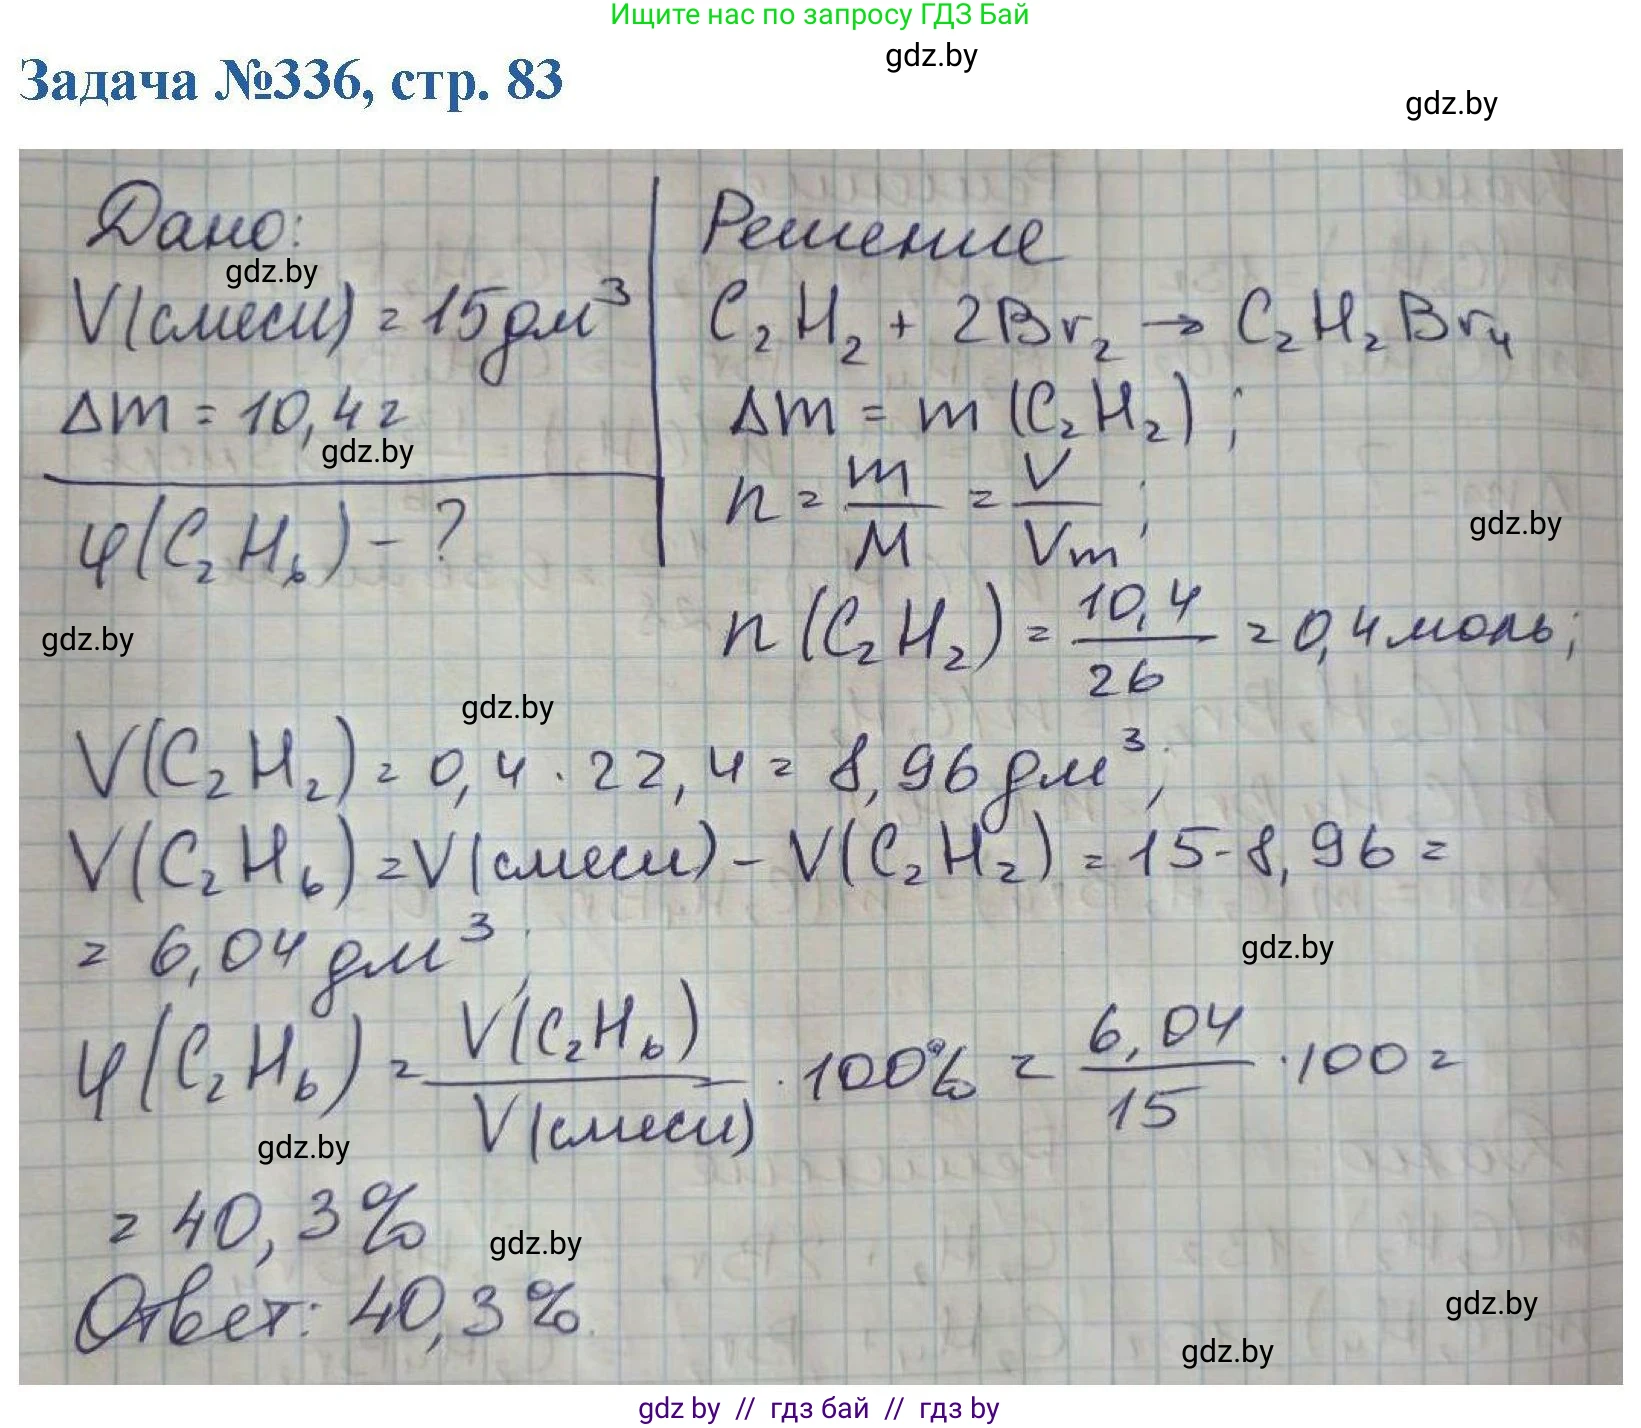 Ищите нас по запросу ГДЗ Бай
gdz.by
Задача №336, стр. 83
gdz.by
Дано:
gdz.by
V(смеси) = 15 дм³
Δm = 10,4 г
gdz.by
φ(C₂H₆) - ?
gdz.by
Решение
C₂H₂ + 2Br₂ → C₂H₂Br₄
Δm = m (C₂H₂) ;
n = m/M = V/Vm ;
gdz.by
n (C₂H₂) = 10,4/26 = 0,4 моль;
gdz.by
V(C₂H₂) = 0,4 · 22,4 = 8,96 дм³;
V(C₂H₆) = V(смеси) - V(C₂H₂) = 15 - 8,96 =
= 6,04 дм³;
gdz.by
φ(C₂H₆) = V(C₂H₆)/V(смеси) · 100% = 6,04/15 · 100 =
gdz.by
= 40,3 %
gdz.by
Ответ: 40,3 %.
gdz.by
gdz.by
gdz.by // гдз бай // гдз by